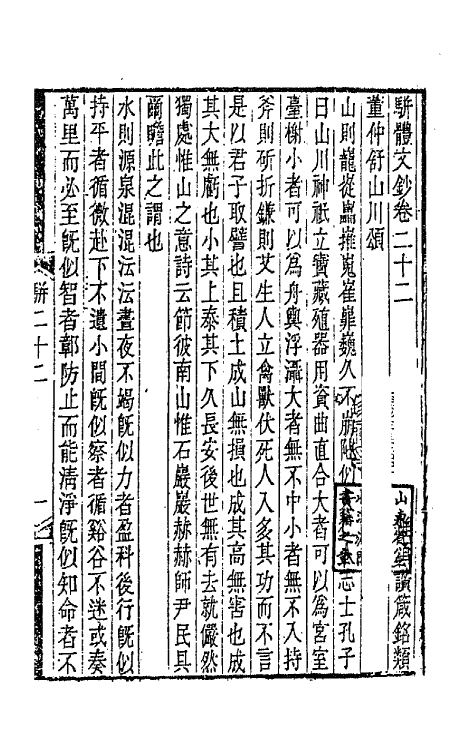 駢體文鈔卷二十二
讚箴銘類
董仲舒山川頌
山則巃嵸嵓嶊嵬嶊嶵巍久不崩陁似夫仁人志士孔子
日山川神祇立寶藏殖器用資曲直合大者可以為宮室
臺榭小者可以為舟輿浮灄大者無不中小者無不入持
斧則斫折鎌則艾生人立禽獸伏死人入多其功而不言
是以君子取譬也且積土成山無損也成其高無害也成
其大無虧也小其上泰其下久長安後世無有去就儼然
獨處惟山之意詩云節彼南山惟石巖巖赫赫師尹民具
爾瞻此之謂也
水則源泉混混沄沄晝夜不竭旣似力者盈科後行旣似
持平者循微赴下不遺小間旣似察者循谿谷不迷或奏
萬里而必至旣似智者鄣防止而能淸淨旣似知命者不
駢二十二
一